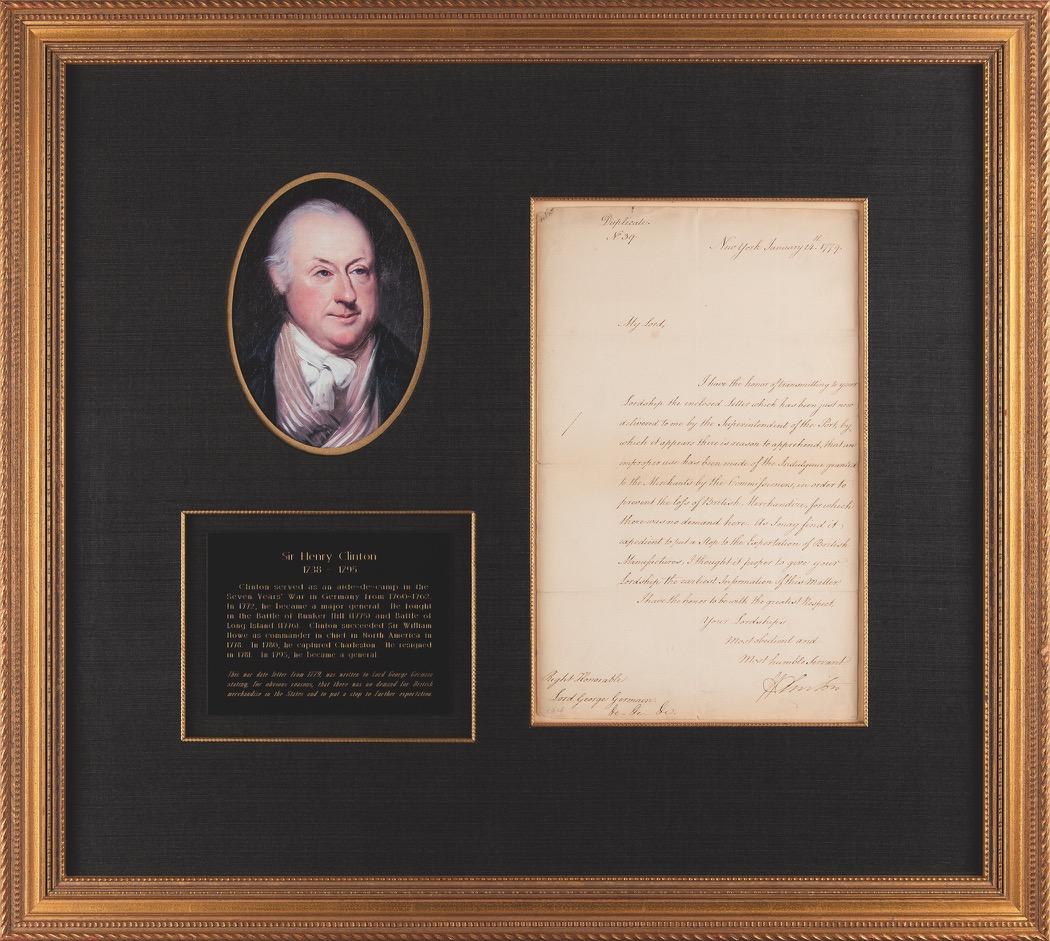 Sir Henry Clinton
1738 – 1795
Clinton served as an aide-de-camp in the
Seven Years' War in Germany from 1760-1762.
In 1772, he became a major general. He fought
in the Battle of Bunker Hill (1775) and Battle of
Long Island (1776). Clinton succeeded Sir William
Howe as commander in chief in North America in
1778. In 1780, he captured Charleston. He resigned
in 1781. In 1793, he became a general.
This war date letter from 1779, was written to Lord George Germain
stating, for obvious reasons, that there was no demand for British
merchandise in the States and to put a stop to further exportation.
Duplicate
No. 39.
New York January 14th. 1779.
My Lord,
I have the honor of transmitting to your
Lordship the enclosed Letter which has been just now
delivered to me by the Superintendent of the Port, by
which it appears there is reason to apprehend, that an
improper use has been made of the Indulgence granted
to the Merchants by the Commissioners, in order to
prevent the loss of British Merchandize, for which
there was no demand here. As I may find it
expedient to put a Stop to the Exportation of British
Manufactures, I thought it proper to give your
Lordship the earliest Information of this Matter.
I have the honor to be with the greatest Respect
Your Lordships
Most obedient and
Most humble Servant
H Clinton
Right Honorable
Lord George Germain
&c. &c. &c.